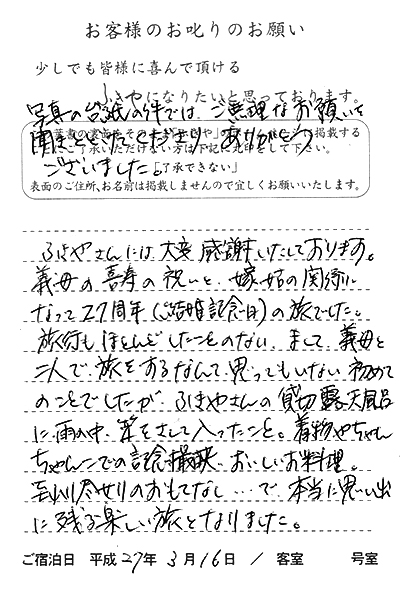 お客様のお叱りのお願い
少しでも皆様に喜んで頂ける
ふきやになりたいと思っております。
写真の台紙の件では、ご無理なお願いを
聞きとどけてくださり、ありがとう
ございました。
「了承できない」
表面のご住所、お名前は掲載しませんので宜しくお願いいたします。
ふきやさんには大変感謝いたしております。
義母の喜寿の祝いと、嫁姑の関係に
なって27周年(ご結婚記念日)の旅でした。
旅行もほとんどしたことのない、まして、義母と
二人で旅をするなんて思ってもいない初めて
のことでしたが、ふきやさんの貸切露天風呂
に雨の中、笠をさして入ったこと。着物やちゃん
ちゃんこでの記念撮映、おいしいお料理。
至れり尽せりのおもてなし…で、本当に思い出
に残る楽しい旅となりました。
ご宿泊日 平成27年3月16日 / 客室 号室